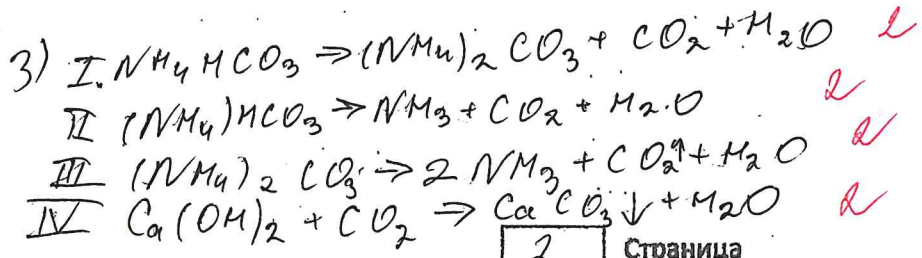 3) I. NH4HCO3 → (NH4)2CO3 + CO2 + H2O 2
II (NH4)HCO3 → NH3 + CO2 + H2O 2
III (NH4)2CO3 → 2NH3 + CO2↑ + H2O 2
IV Ca(OH)2 + CO2 → CaCO3↓ + H2O 2
2 Страница